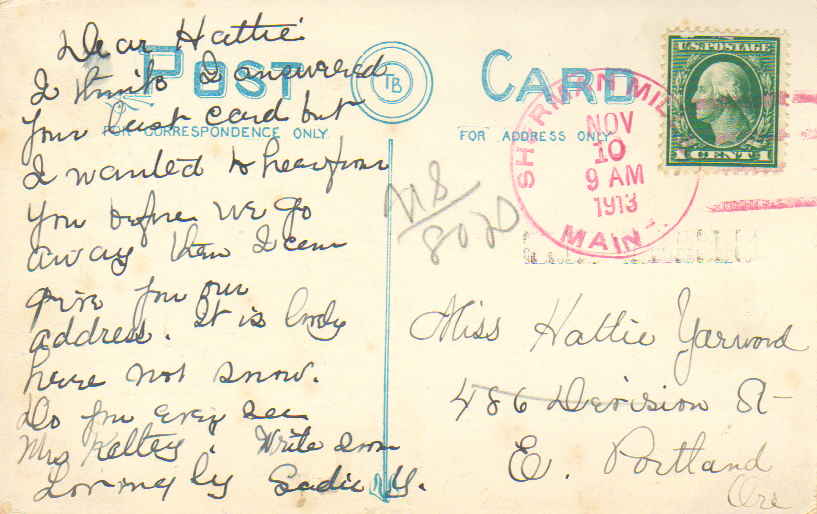 Dear Hattie
I think I answered
your last card but
I wanted to hear from
you before we go
away then I can
give you our
address. It is lovely
here not snow.
Do you ever see
Mrs Keltey. Write soon
Lovingly Sadie Y.
POST CARD
TB
FOR CORRESPONDENCE ONLY
FOR ADDRESS ONLY
SHERMAN MIL
NOV
10
9 AM
1913
MAIN
U.S. POSTAGE
1 CENT 1
Miss Hattie Yarwood
486 Division St
E. Portland
Ore